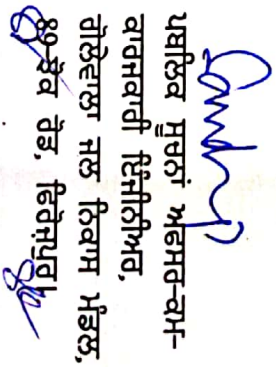 ਪਬਲਿਕ ਸੂਚਨਾਂ ਅਫਸਰ-ਕਮ-
ਕਾਰਜਕਾਰੀ ਇੰਜੀਨੀਅਰ,
ਗੋਲੇਵਾਲਾ ਜਲ ਨਿਕਾਸ ਮੰਡਲ,
ਫਿਰੋਜ਼ਪੁਰ।